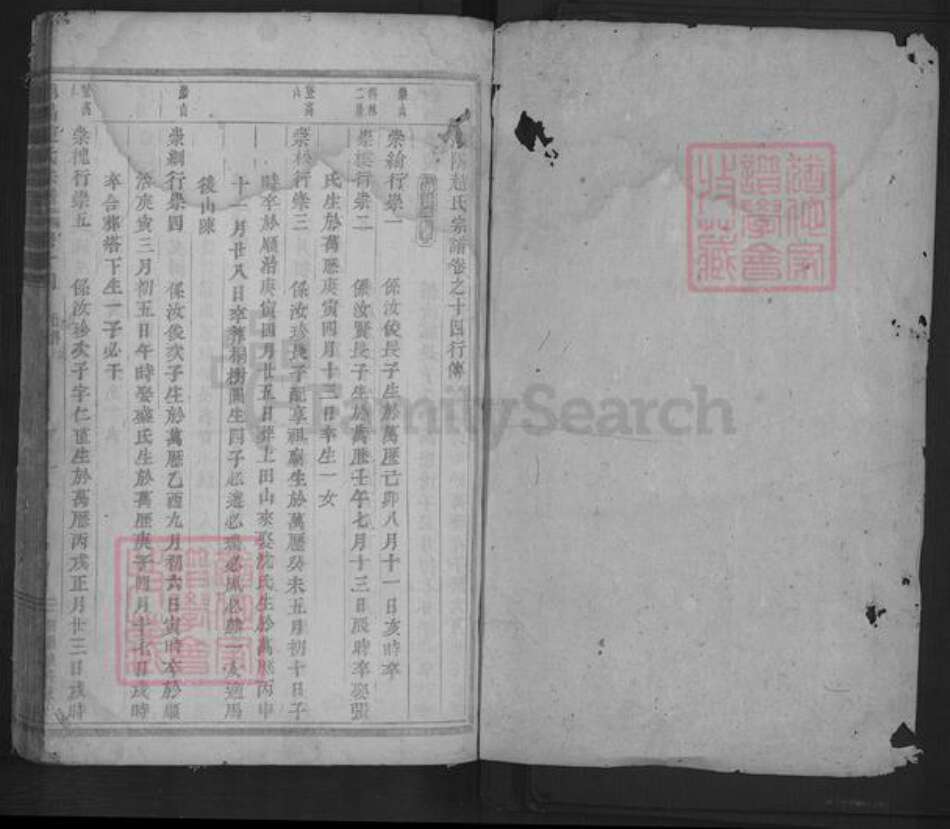 趙氏宗譜卷之十四行傳
崇綸行崇一 係汝俊長子生於萬歷己卯八月十一日亥時卒
行崇二 係汝賢長子生於萬歷壬午七月十三日辰時卒娶張
氏生於萬歷庚寅四月十三日卒生一女
行崇三 係汝珍長子配享祖廟生於萬歷癸未五月初十日子
時卒於順治庚寅四月廿五日葬上田山來娶沈氏生於萬歷丙申
十一月廿八日卒葬桐樹園生四子必達必瑞必鳳必 一女適馬
後山陳
行崇四 係汝俊次子生於萬歷乙酉九月初六日寅時卒於順
治庚寅三月初五日午時娶 氏生於萬歷庚子四月十七日戌時
卒合葬塔下生一子必干
行崇五 係汝珍次子字仁 生於萬歷丙戌正月廿三日戌時
譜學會
收藏
FamilySearch